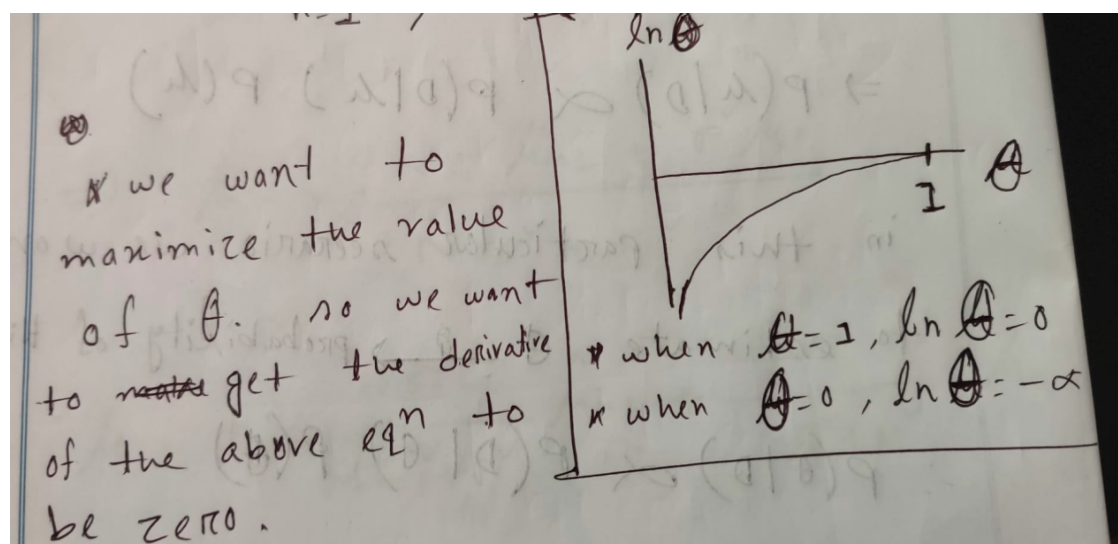 * we want to
maximize the value
of θ. so we want
to get the derivative
of the above eqⁿ to
be zero.
ln θ
θ
1
* when θ=1, ln θ=0
* when θ=0, ln θ=-∝